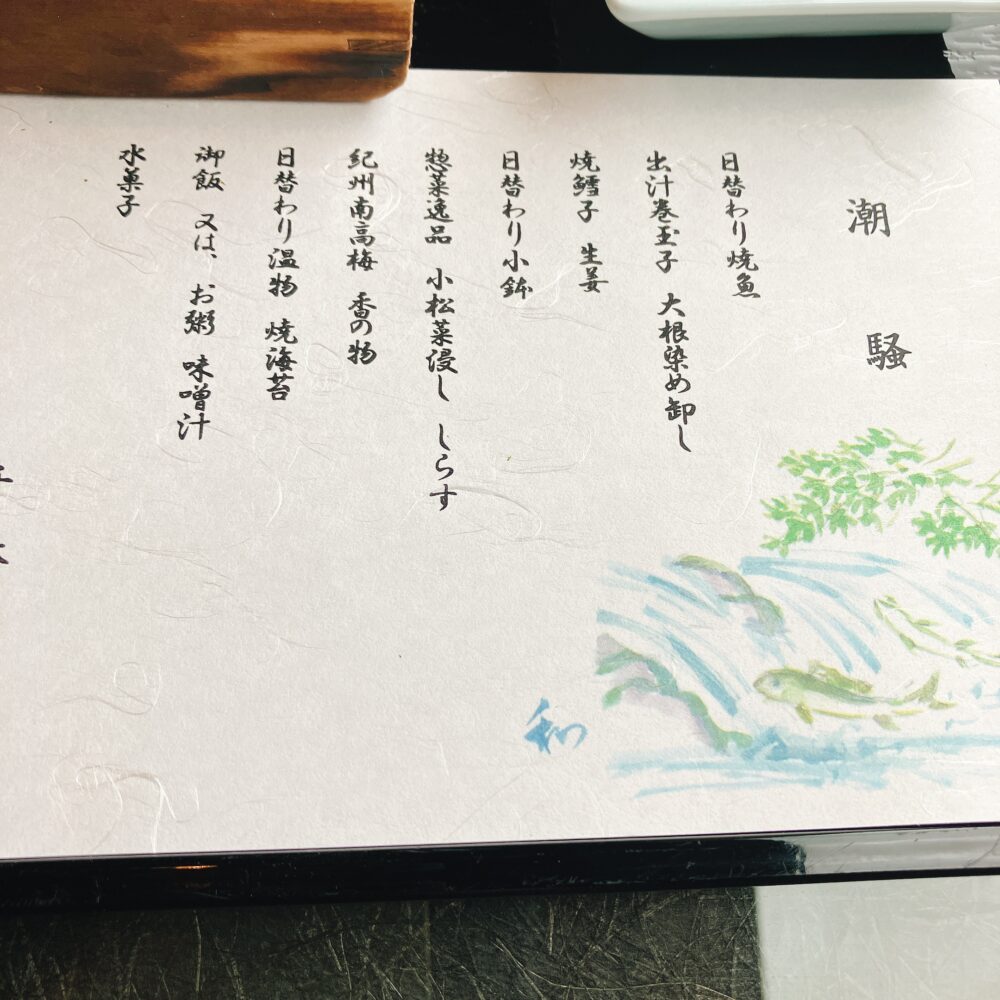 潮騒
日替わり焼魚
出汁巻玉子　大根染め卸し
焼鱈子　生姜
日替わり小鉢
惣菜逸品　小松菜浸し　しらす
紀州南高梅　香の物
日替わり温物　焼海苔
御飯　又は、　お粥　味噌汁
水菓子
和